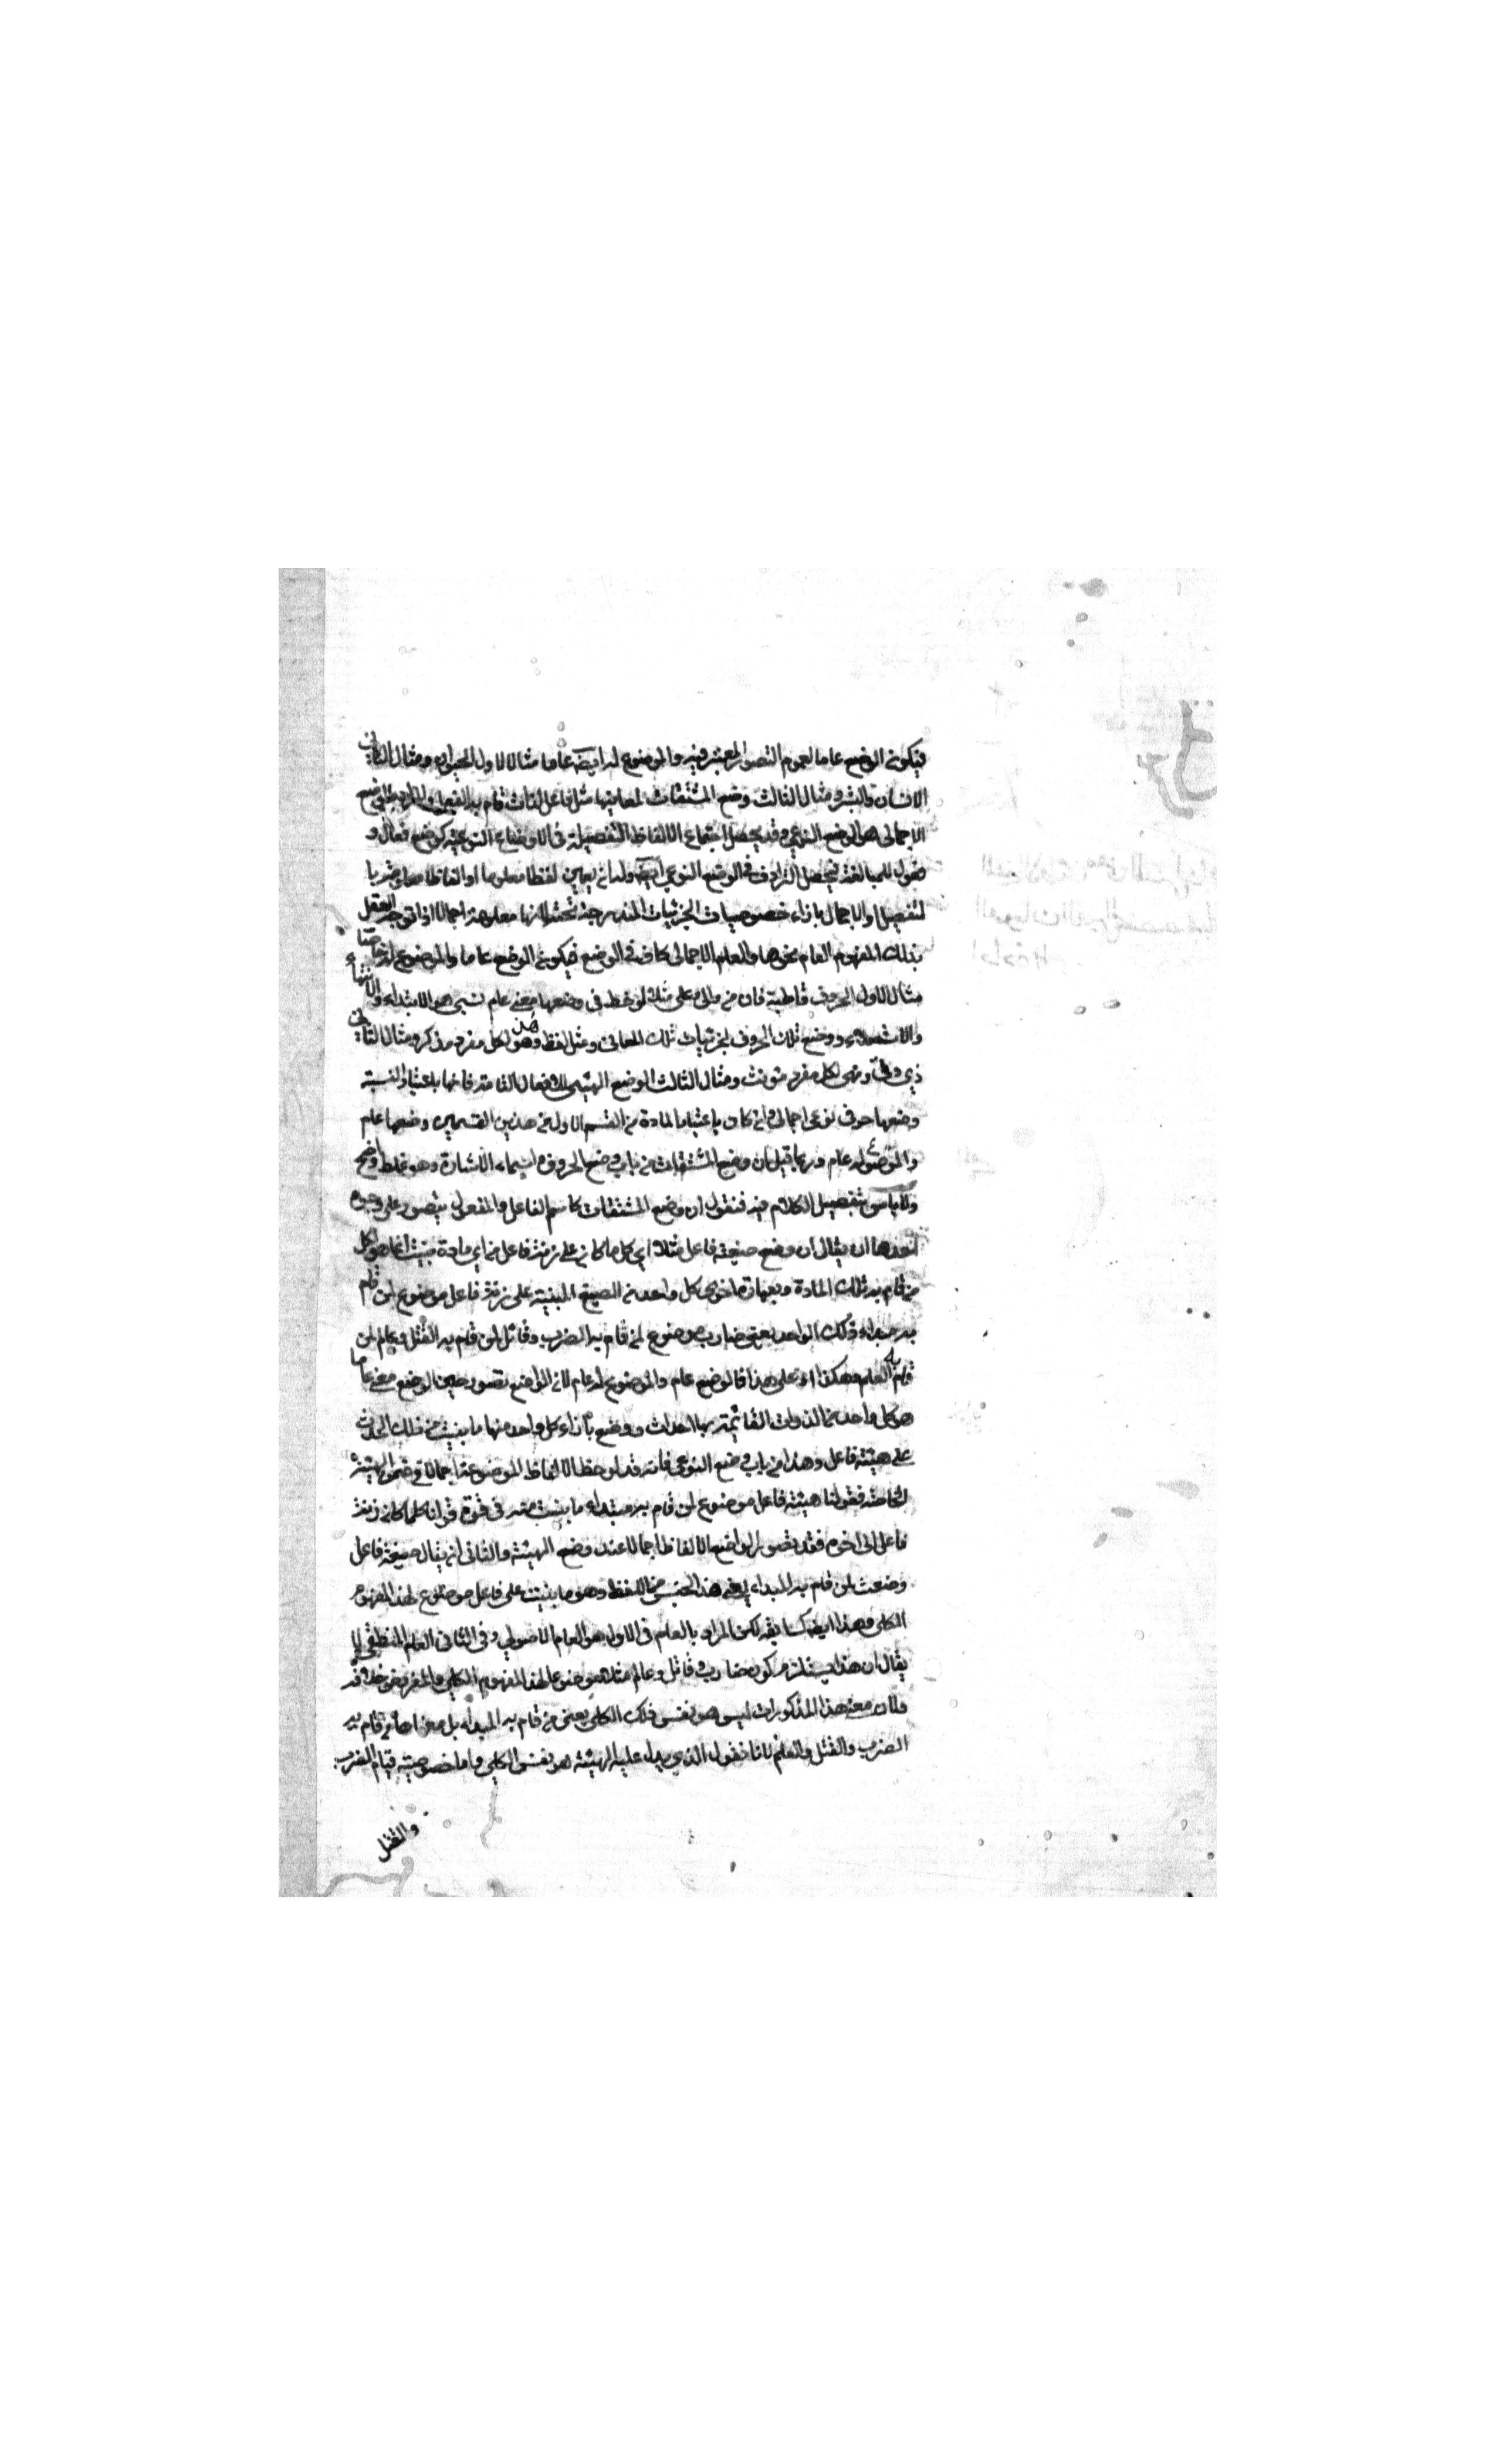 فيكون الوضع عاما لعموم التصور المعتبر فيه والموضوع له ايضا عاما مثال الاول الحيوان ومثال الثاني
الانسان والبشر ومثال الثالث وضع المشتقات لمعانيها مثل فاعل لذات قام به الفعل والمراد بالوضع
الاجمالى هو الوضع النوعي وقد يحصل اجتماع الالفاظ التفصيلة فى الاوضاع النوعية كوضع فعال و
فعول للمبالغة فيحصل الترادف فى الوضع النوعي ايضا وله ان يعين لفظا معلوما او الفاظا معلومة با
لتفصيل او الاجمال بازاء خصوصيات الجزئيات المندرجة تحته لانها معلومة اجمالا اذا توجه العقل
بذلك المفهوم العام نحوها والعلم الاجمالى كاف فى الوضع فيكون الوضع عاما والموضوع له خاصا
مثال الاول الحروف قاطبة فان من والى وعلى مثلا لوحظ فى وضعها معنى عام نسبى هو الابتداء والانتهاء
والاستعلاء ووضع تلك الحروف لجزئيات تلك المعانى ومثل لفظ هذا وهو لكل مفرد مذكر ومثال الثانى
ذي وتى وتهى لكل مفرد مؤنث ومثال الثالث الوضع الهيئى للافعال التامة فانها باعتبار النسبة
وضعها حرفى نوعى اجمالى وان كان باعتبار المادة من القسم الاول من هذين القسمين وضعها عام
والموضوع له عام وربما قيل ان وضع المشتقات من باب وضع الحروف واسماء الاشارة وهو غلط واضح
ولا باس بتفصيل الكلام فيه فنقول ان وضع المشتقات كاسم الفاعل والمفعول يتصور على وجوه
احدها ان يقال ان وضع صيغة فاعل مثلا اي كل ما كان على زنة فاعل من اي مادة بنيت انما هو لكل
من قام به تلك المادة وبعبارة اخرى كل واحد من الصيغ المبنية على زنة فاعل موضوع لمن قام
به مبداء ذلك الواحد يعنى ضارب موضوع لمن قام به الضرب وقاتل لمن قام به القتل وعالم لمن
قام به العلم وهكذا وعلى هذا فالوضع عام والموضوع له عام لان الواضع تصور حين الوضع معنى عاما
هو كل واحد من الذوات القائمة بها احداث ووضع بازاء كل واحد منها ما بنيت من ذلك الحدث
على هيئة فاعل وهذا من باب وضع النوعى فانه قد لوحظ الالفاظ الموضوعة اجمالا فى ضمن الهيئة
الخاصة فقولنا هيئة فاعل موضوع لمن قام به مبداء ما بنيت منه فى قوة قولنا كلما كان زنة
فاعل الى اخره فقد تصور الواضع الالفاظ اجمالا عند وضع الهيئة والثانى ان يقال صيغة فاعل
وضعت لمن قام به المبداء يعنى هذا الجنس من اللفظ وهو ما بنيت على فاعل موضوع لهذا المفهوم
الكلى وهذا ايضا كسابقه لكن المراد بالعام فى الاول هو العام الاصولي وفى الثانى العام المنطقى لا
يقال ان هذا يستلزم كون ضارب وقاتل وعالم مثلا موضوعا لهذا المفهوم الكلي والمفروض خلافه
ولان معنى هذا المذكورات ليس هو نفس ذلك الكلى يعنى من قام به المبداء بل معناها من قام به
الضرب والقتل والعلم لانا نقول الذي يدل عليه الهيئة هو نفس الكلي واما خصوصية قيام الضرب
والقتل